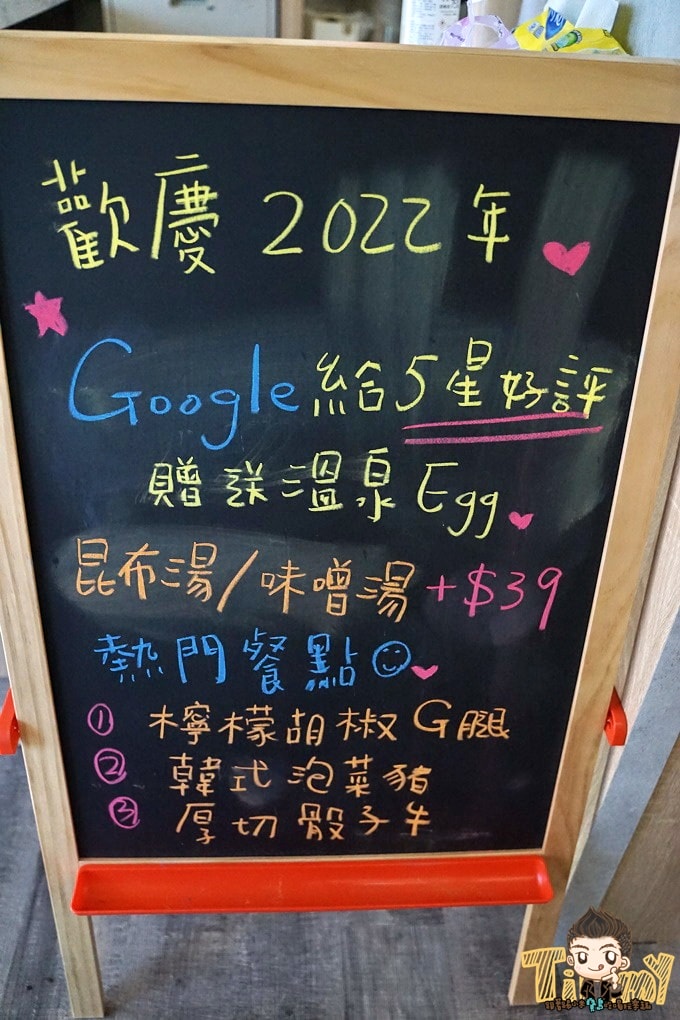 歡慶 2022 年
Google 給 5 星好評
贈送溫泉 Egg
昆布湯/味噌湯 +$39
熱門餐點
① 檸檬胡椒 G腿
② 韓式泡菜豬
③ 厚切骰子牛